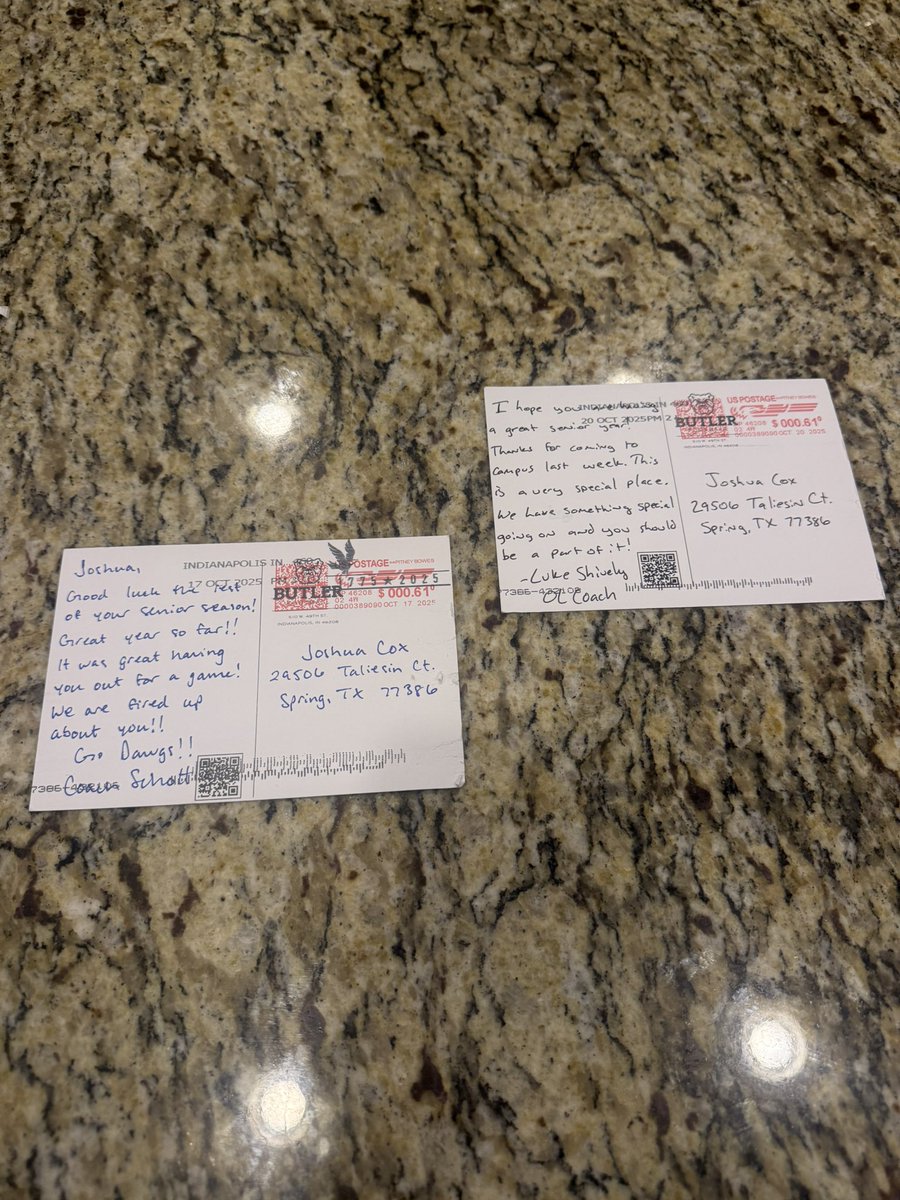 Joshua,
Good luck the rest
of your senior season!
Great year so far!!
It was great having
you out for a game!
We are fired up
about you!!
Go Dawgs!!
Coach Schott
INDIANAPOLIS IN
17 OCT 2025 PM
1775 ★ 2025
POSTAGE PITNEY BOWES
BUTLER
46208 $ 000.61⁰
02 4W
0000389090 OCT 17 2025
INDIANAPOLIS, IN 46208
Joshua Cox
29506 Taliesin Ct.
Spring, TX 77386
I hope you are having
a great senior year!
Thanks for coming to
campus last week. This
is a very special place.
We have something special
going on and you should
be a part of it!
-Luke Shively
OL Coach
INDIANAPOLIS IN
20 OCT 2025 PM 2
US POSTAGE PITNEY BOWES
BUTLER
ZIP 46208 $ 000.61⁰
02 4W
0000389090 OCT 20 2025
INDIANAPOLIS, IN 46208
Joshua Cox
29506 Taliesin Ct.
Spring, TX 77386